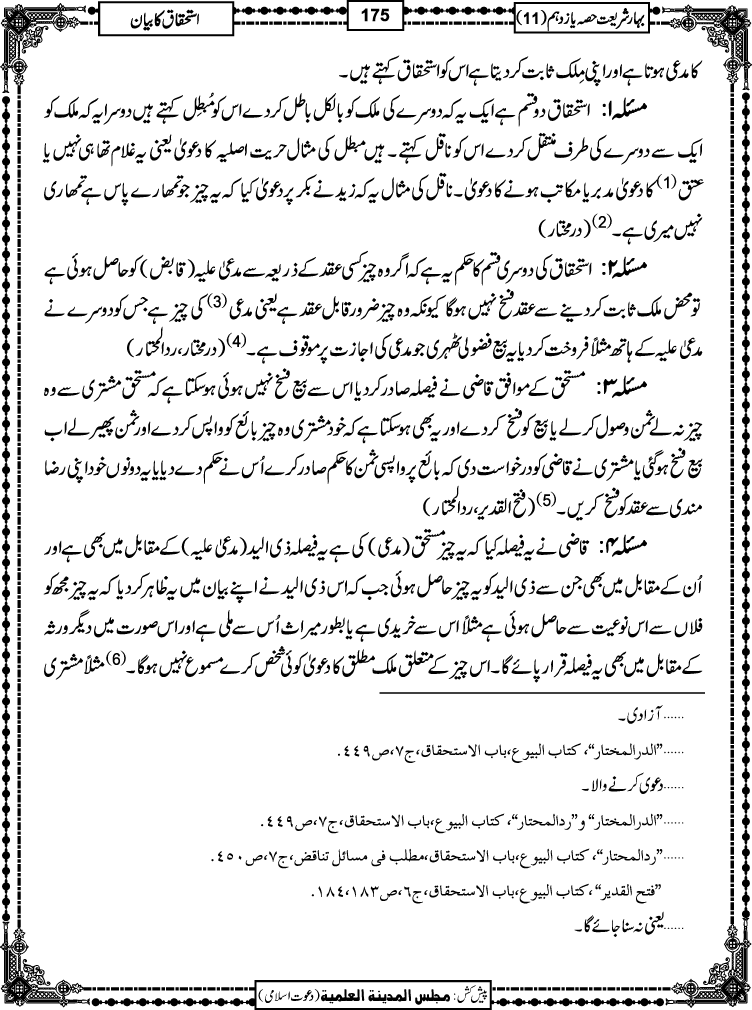 بہار شریعت حصہ یازدہم (11)
175
استحقاق کا بیان
کا مدعی ہوتا ہے اور اپنی مِلک ثابت کر دیتا ہے اس کو استحقاق کہتے ہیں۔
مسئلہ ۱: استحقاق دو قسم ہے ایک یہ کہ دوسرے کی ملک کو بالکل باطل کر دے اس کو مُبطِل کہتے ہیں دوسرا یہ کہ ملک کو
ایک سے دوسرے کی طرف منتقل کر دے اس کو ناقل کہتے۔ ہیں مبطل کی مثال حریت اصلیہ کا دعویٰ یعنی یہ غلام تھا ہی نہیں یا
عتق (1) کا دعویٰ مدبر یا مکاتب ہونے کا دعویٰ۔ ناقل کی مثال یہ کہ زید نے بکر پر دعویٰ کیا کہ یہ چیز جو تمھارے پاس ہے تمھاری
نہیں میری ہے۔(2) (درمختار)
مسئلہ ۲: استحقاق کی دوسری قسم کا حکم یہ ہے کہ اگر وہ چیز کسی عقد کے ذریعہ سے مدعیٰ علیہ (قابض) کو حاصل ہوئی ہے
تو محض ملک ثابت کر دینے سے عقد فسخ نہیں ہوگا کیونکہ وہ چیز ضرور قابل عقد ہے یعنی مدعی (3) کی چیز ہے جس کو دوسرے نے
مدعیٰ علیہ کے ہاتھ مثلاً فروخت کر دیا یہ بیع فضولی ٹھہری جو مدعی کی اجازت پر موقوف ہے۔(4) (درمختار، ردالمحتار)
مسئلہ ۳: مستحق کے موافق قاضی نے فیصلہ صادر کر دیا اس سے بیع فسخ نہیں ہوئی ہوسکتا ہے کہ مستحق مشتری سے وہ
چیز نہ لے ثمن وصول کر لے یا بیع کو فسخ کر دے اور یہ بھی ہوسکتا ہے کہ خود مشتری وہ چیز بائع کو واپس کر دے اور ثمن پھیر لے اب
بیع فسخ ہوگئی یا مشتری نے قاضی کو درخواست دی کہ بائع پر واپسی ثمن کا حکم صادر کرے اُس نے حکم دے دیا یا یہ دونوں خود اپنی رضا
مندی سے عقد کو فسخ کریں۔(5) (فتح القدیر، ردالمحتار)
مسئلہ ۴: قاضی نے یہ فیصلہ کیا کہ یہ چیز مستحق (مدعی) کی ہے یہ فیصلہ ذی الید (مدعیٰ علیہ) کے مقابل میں بھی ہے اور
اُن کے مقابل میں بھی جن سے ذی الید کو یہ چیز حاصل ہوئی جب کہ اس ذی الید نے اپنے بیان میں یہ ظاہر کر دیا کہ یہ چیز مجھ کو
فلاں سے اس نوعیت سے حاصل ہوئی ہے مثلاً اس سے خریدی ہے یا بطور میراث اُس سے ملی ہے اور اس صورت میں دیگر ورثہ
کے مقابل میں بھی یہ فیصلہ قرار پائے گا۔ اس چیز کے متعلق ملک مطلق کا دعویٰ کوئی شخص کرے مسموع نہیں ہوگا۔(6) مثلاً مشتری
......آزادی۔
......”الدرالمختار“، کتاب البیوع،باب الاستحقاق،ج۷،ص۴۴۹.
......دعوی کرنے والا۔
......”الدرالمختار“ و”ردالمحتار“، کتاب البیوع،باب الاستحقاق،ج۷،ص۴۴۹.
......”ردالمحتار“، کتاب البیوع،باب الاستحقاق،مطلب فی مسائل تناقض،ج۷،ص۴۵۰.
”فتح القدیر“،کتاب البیوع،باب الاستحقاق،ج۶،ص۱۸۴،۱۸۳.
......یعنی نہ سنا جائے گا۔
پیش کش: مجلس المدینۃ العلمیۃ (دعوت اسلامی)